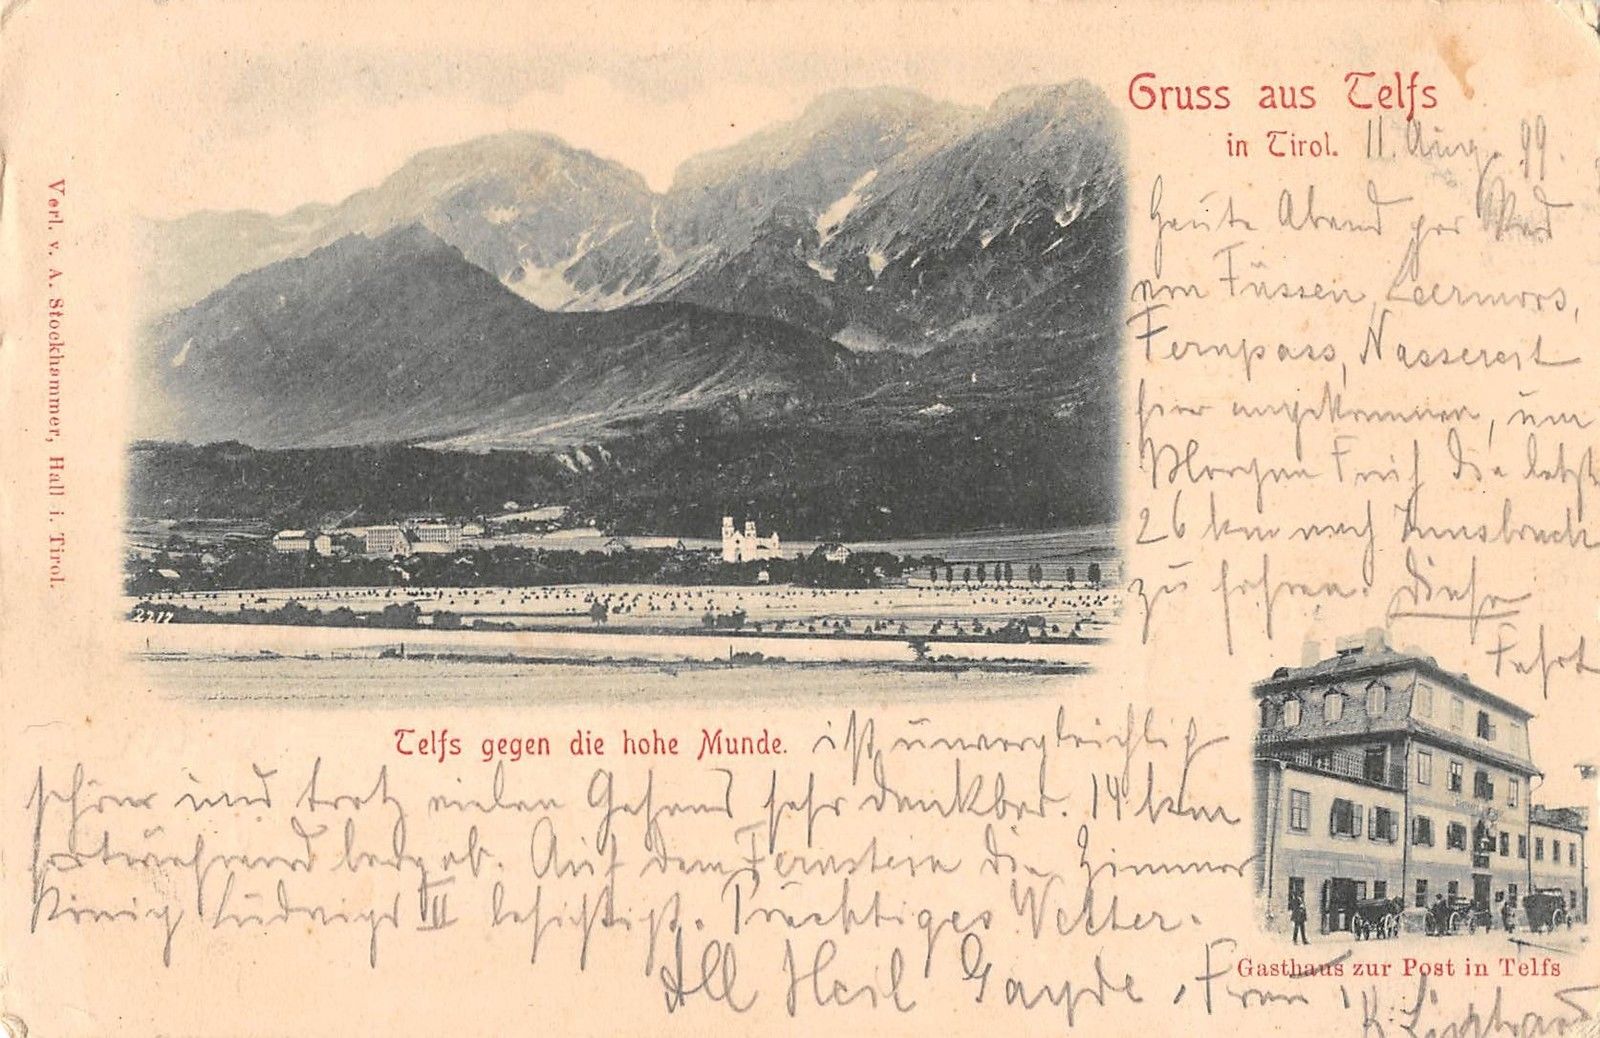 Gruss aus Telfs
in Tirol. 11. Aug. 99.
Heute Abend per Rad
von Füssen, Leermoos,
Fernpass, Nassereit
hier angekommen, um
Morgen Früh die letzt
26 km nach Innsbruck
zu fahren. Diese
Fahrt
Telfs gegen die hohe Munde. ist unvergleichlich
schön und trotz vielen Gehens sehr dankbar. 14 km
fortwährend bergab. Auf dem Fernstein die Zimmer
König Ludwigs II besichtigt. Prächtiges Wetter.
All Heil
Gasthaus zur Post in Telfs
Verl. v. A. Stockhammer, Hall i. Tirol.
2217